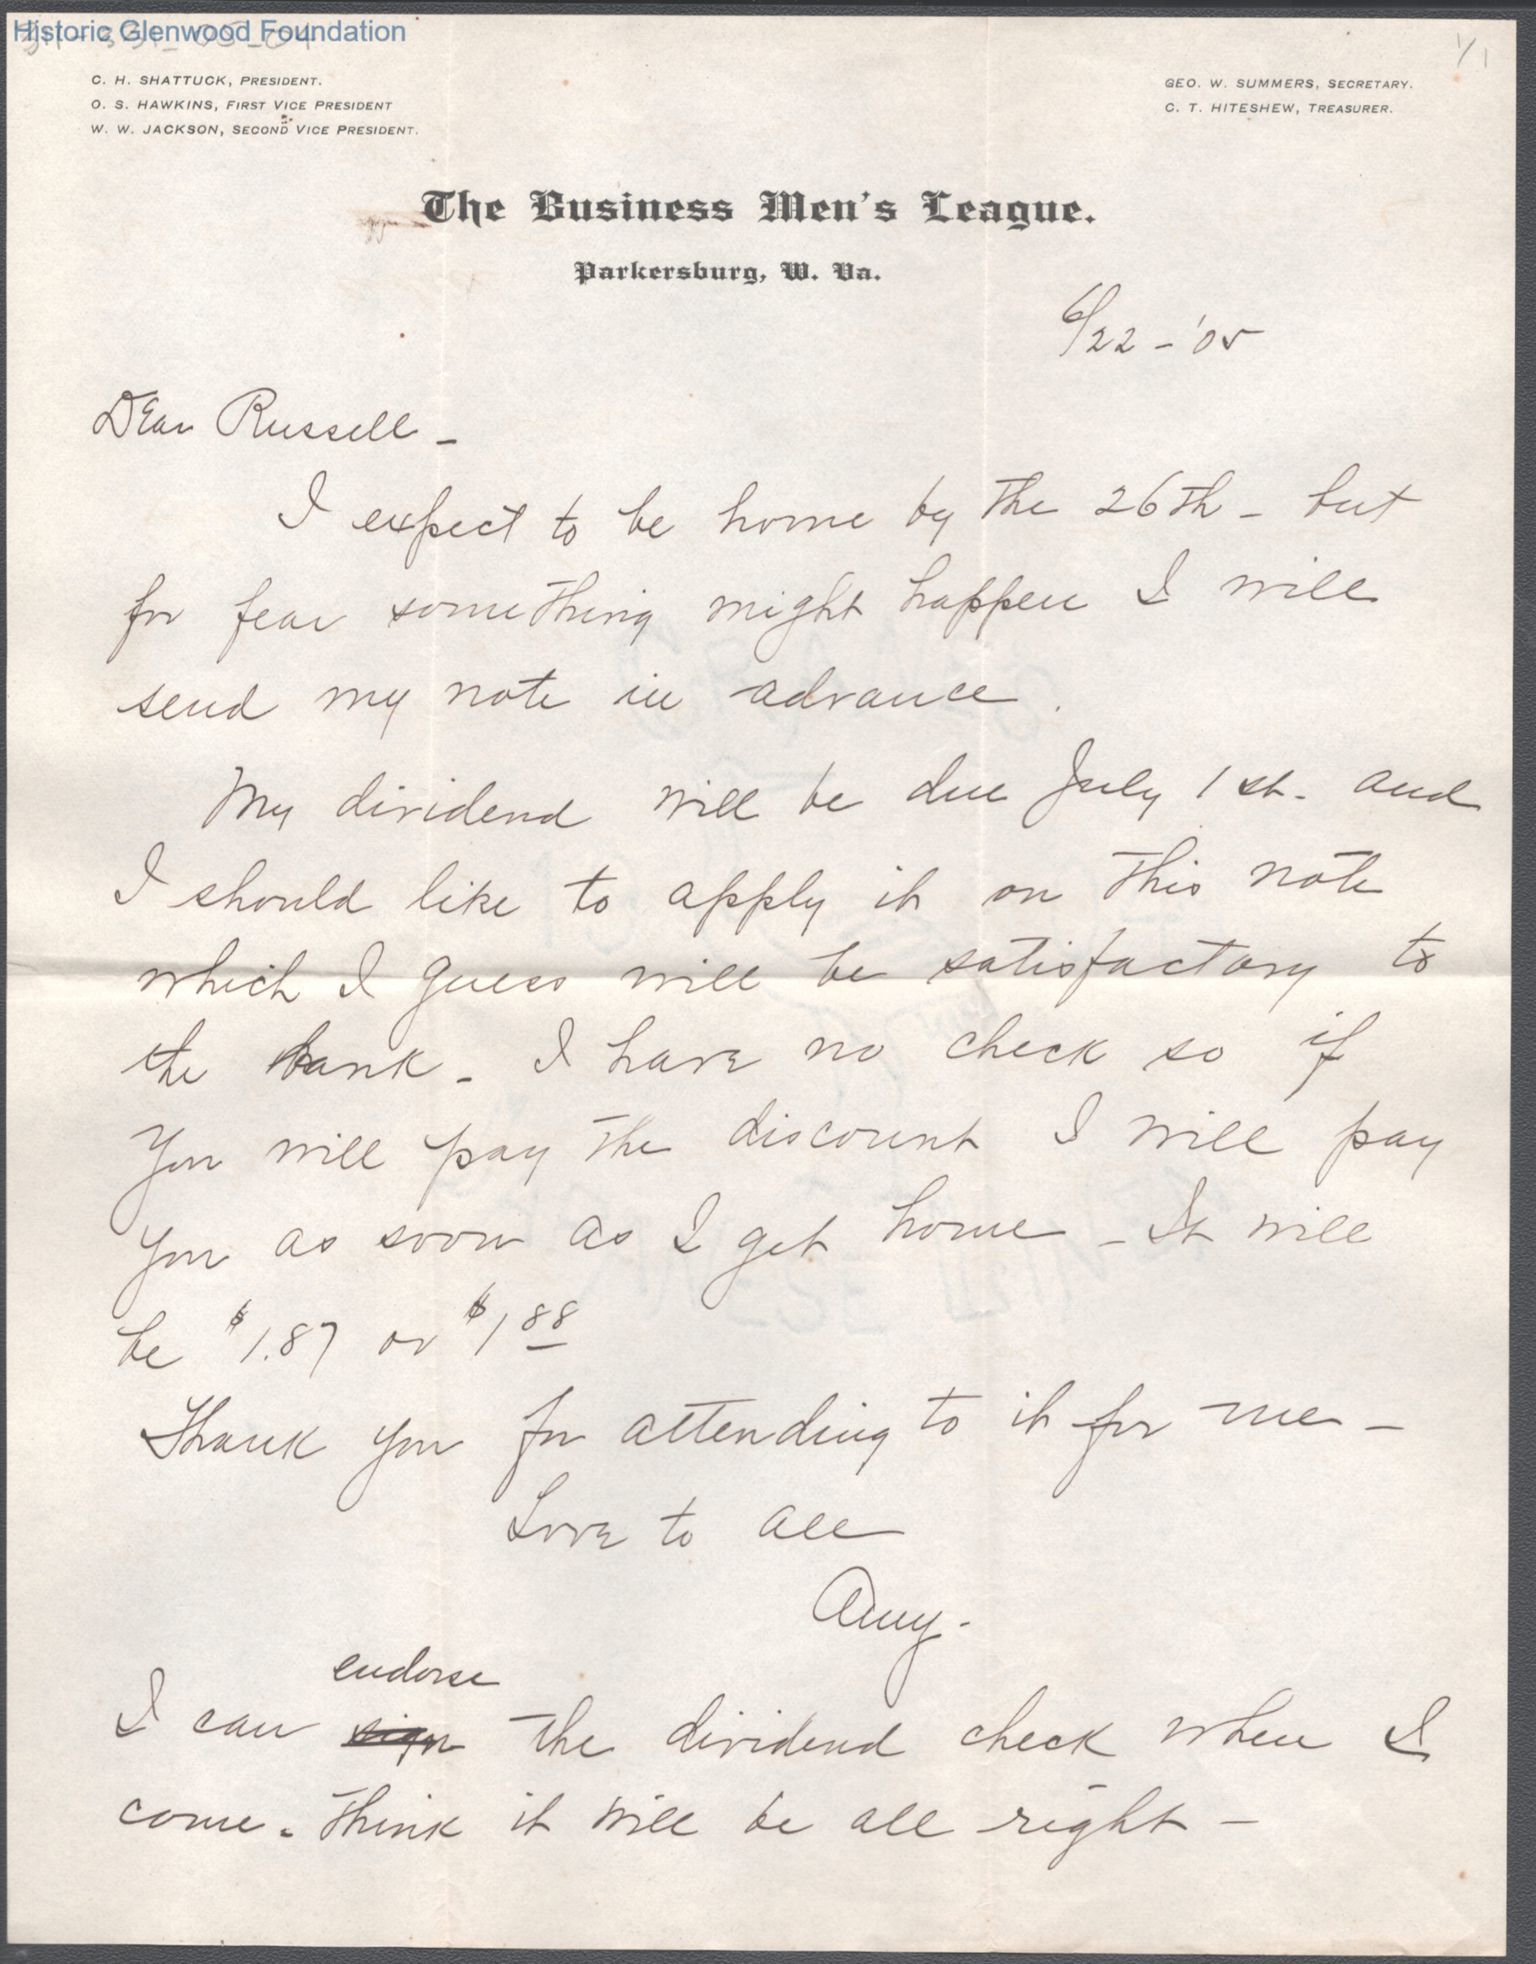 Historic Glenwood Foundation
1/1
C. H. SHATTUCK, PRESIDENT.
O. S. HAWKINS, FIRST VICE PRESIDENT
W. W. JACKSON, SECOND VICE PRESIDENT.
GEO. W. SUMMERS, SECRETARY.
C. T. HITESHEW, TREASURER.
The Business Men's League.
Parkersburg, W. Va.
6/22-'05
Dear Russell -
I expect to be home by the 26th - but
for fear something might happen I will
send my note in advance.
My dividend will be due July 1st. and
I should like to apply it on this note
which I guess will be satisfactory to
the bank - I have no check so if
you will pay the discount I will pay
you as soon as I get home - It will
be $1.87 or $1 88
Thank you for attending to it for me -
Love to all
Amy.
endorse
I can sign the dividend check when I
come. Think it will be all right -